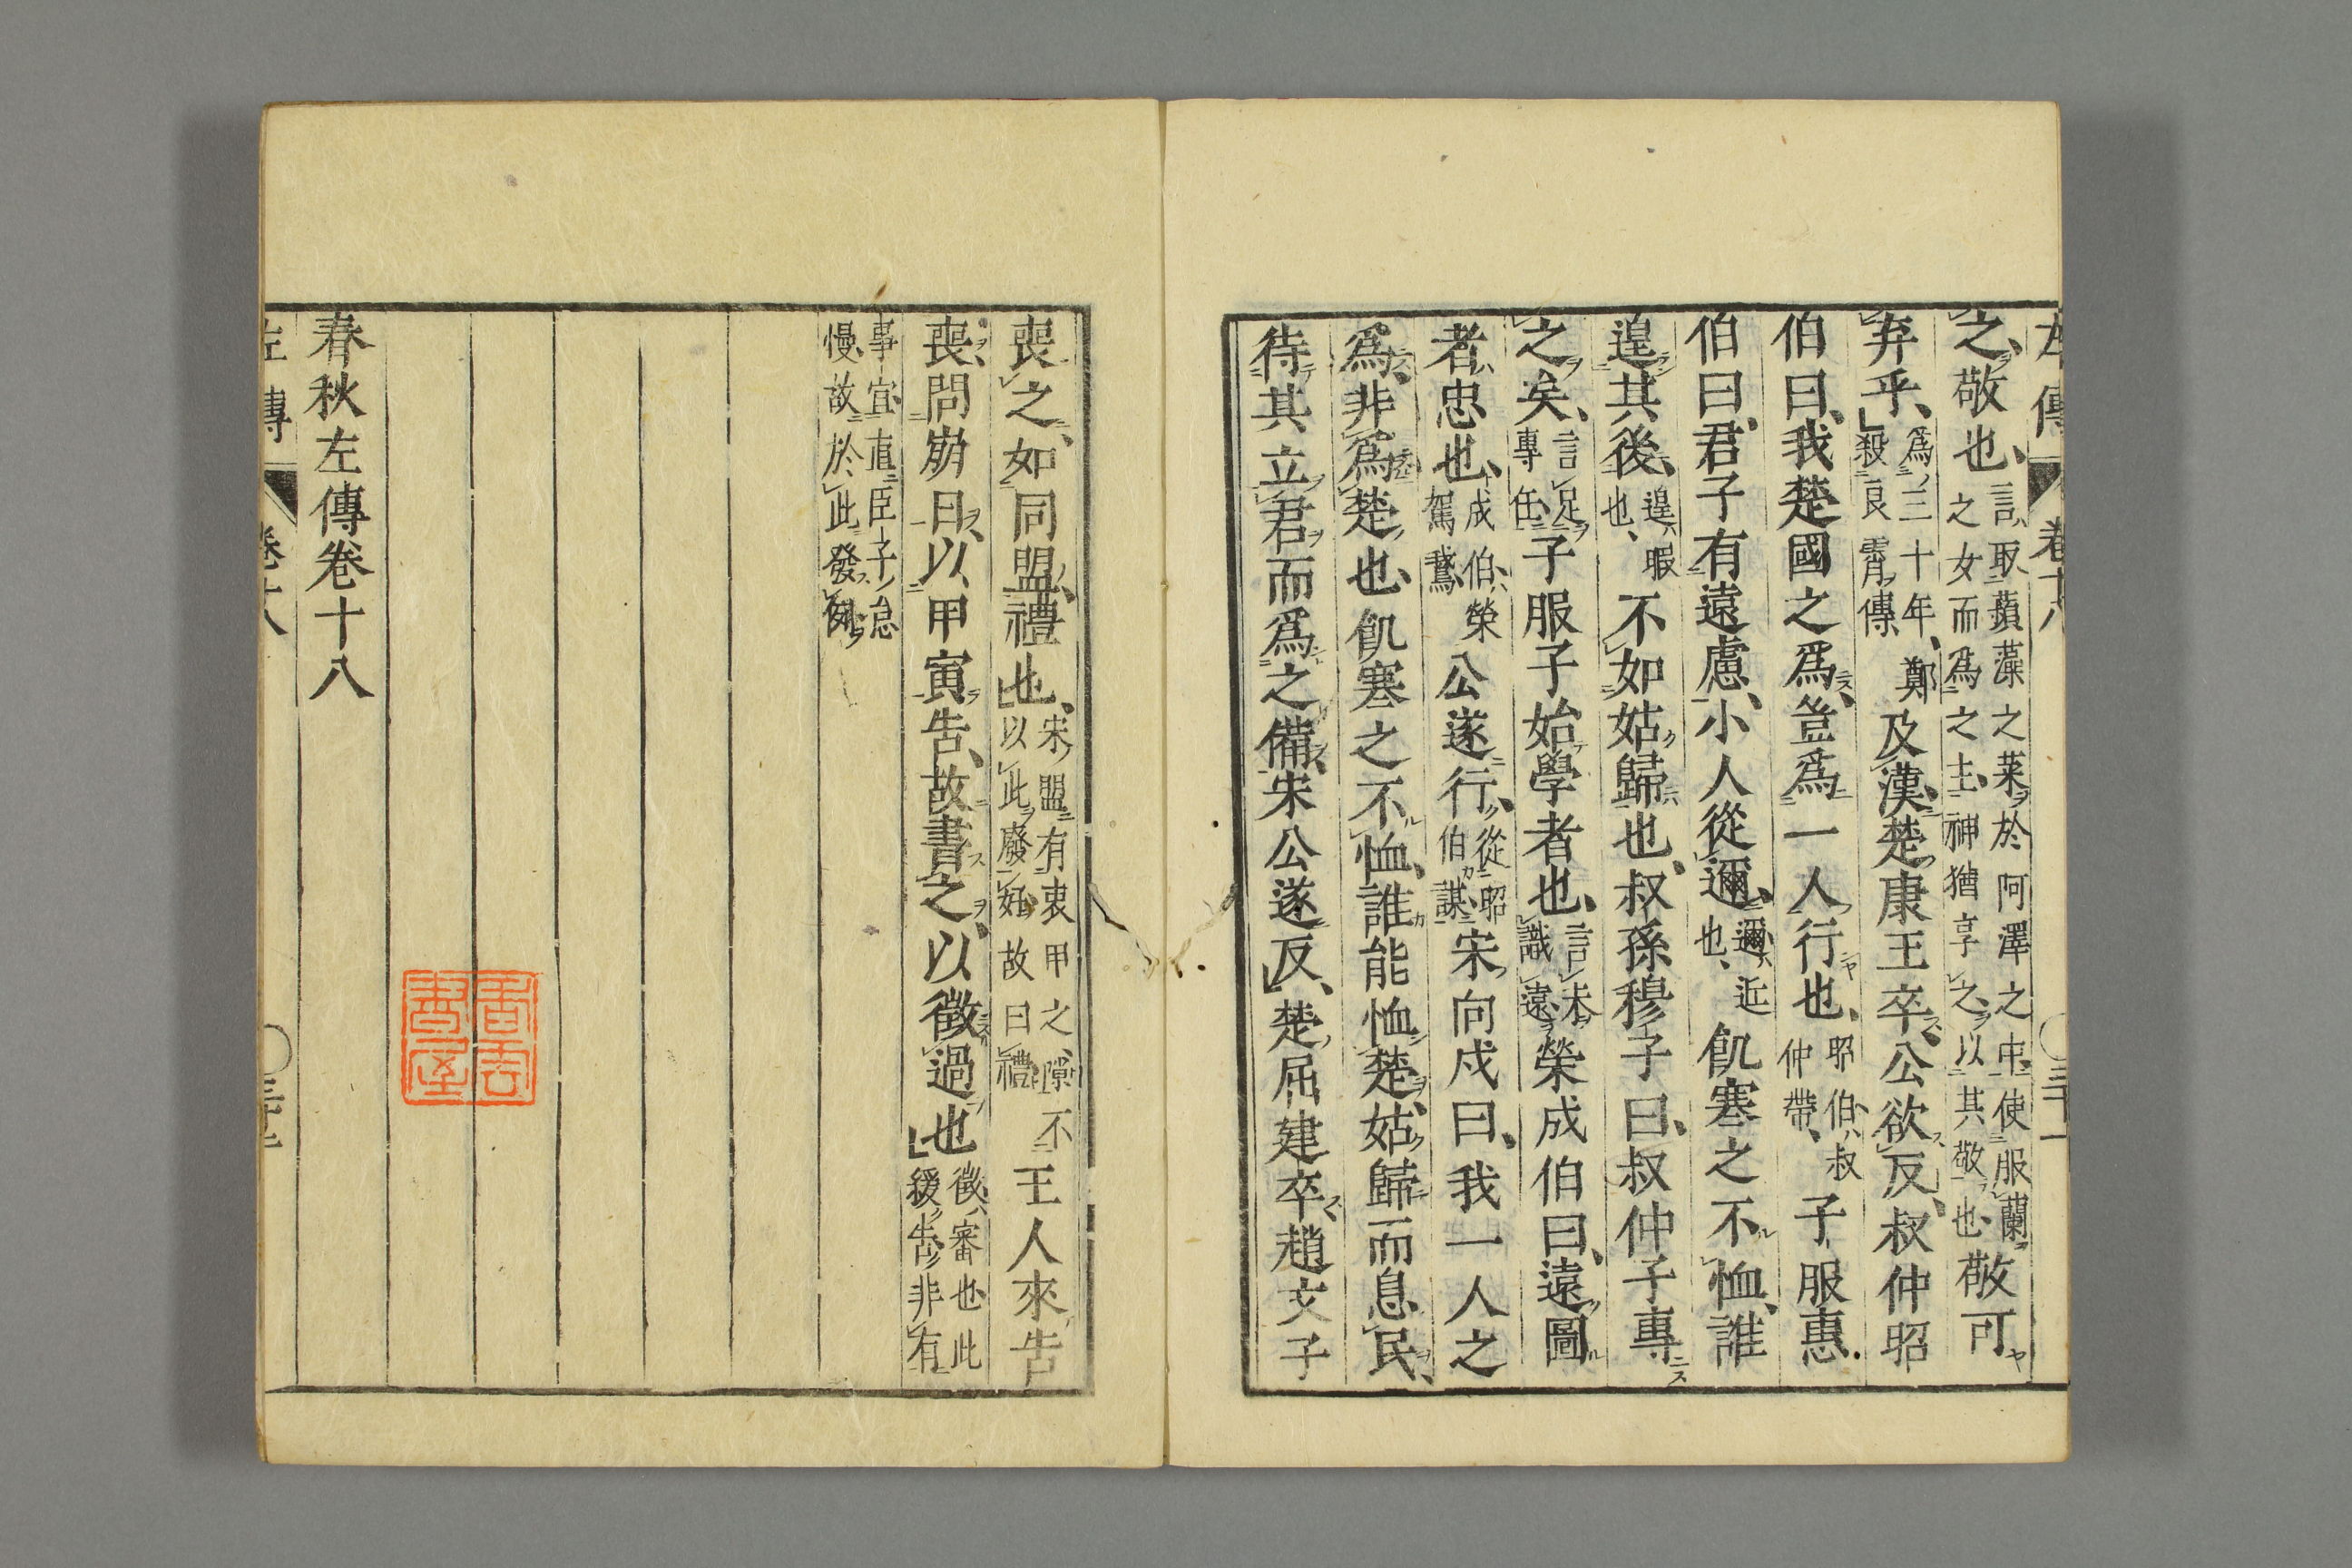 左傳 卷十八 三十一
之敬也言取蘋藻之菜於阿澤之中使服蘭之女而爲之主神猶享之以其敬也敬可
弃乎爲三十年鄭殺良霄傳及漢楚康王卒公欲反叔仲昭
伯曰我楚國之爲豈爲一人行也昭伯叔仲帶子服惠
伯曰君子有遠慮小人從邇邇近也飢寒之不恤誰
遑其後遑暇也不如姑歸也叔孫穆子曰叔仲子專
之矣言足專任子服子始學者也言未識遠榮成伯曰遠圖
者忠也成伯榮駕鵞公遂行從昭伯謀宋向戌曰我一人之
爲非爲楚也飢寒之不恤誰能恤楚姑歸而息民
待其立君而爲之備宋公遂反楚屈建卒趙文子
喪之如同盟禮也宋盟有衷甲之隙不以此廢好故曰禮王人來告
喪問崩日以甲寅告故書之以徵過也徵審也此緩告非有
事宜直臣子怠慢故於此發例
春秋左傳卷十八
左傳 卷十八